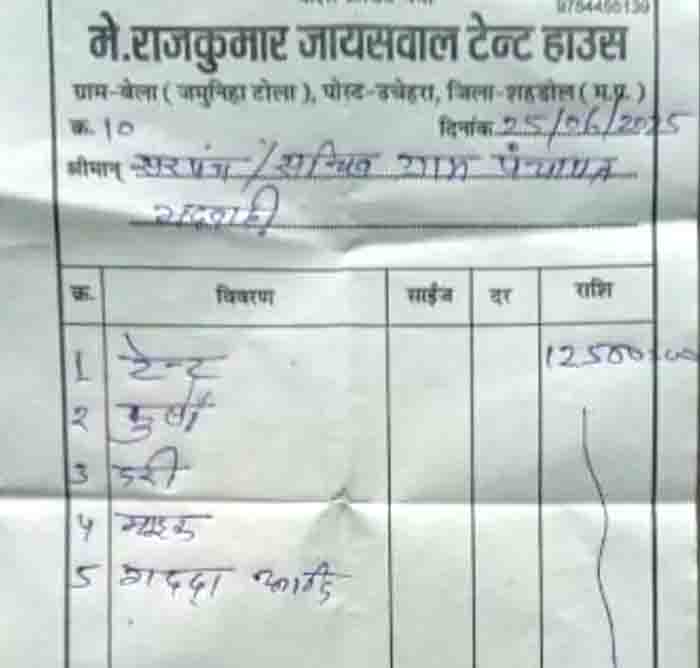 9754455139
मे.राजकुमार जायसवाल टेन्ट हाउस
ग्राम-बेला ( जमुनिहा टोला ), पोस्ट-उचेहरा, जिला-शहडोल ( म.प्र. )
क्र. 10 दिनांक 25/06/2025
श्रीमान् सरपंच / सचिव ग्राम पंचायत
भदवाही
क्र. विवरण साईज दर राशि
1 टेन्ट 12500=00
२ कुर्सी
3 दरी
4 माइक
5 गददा आदि